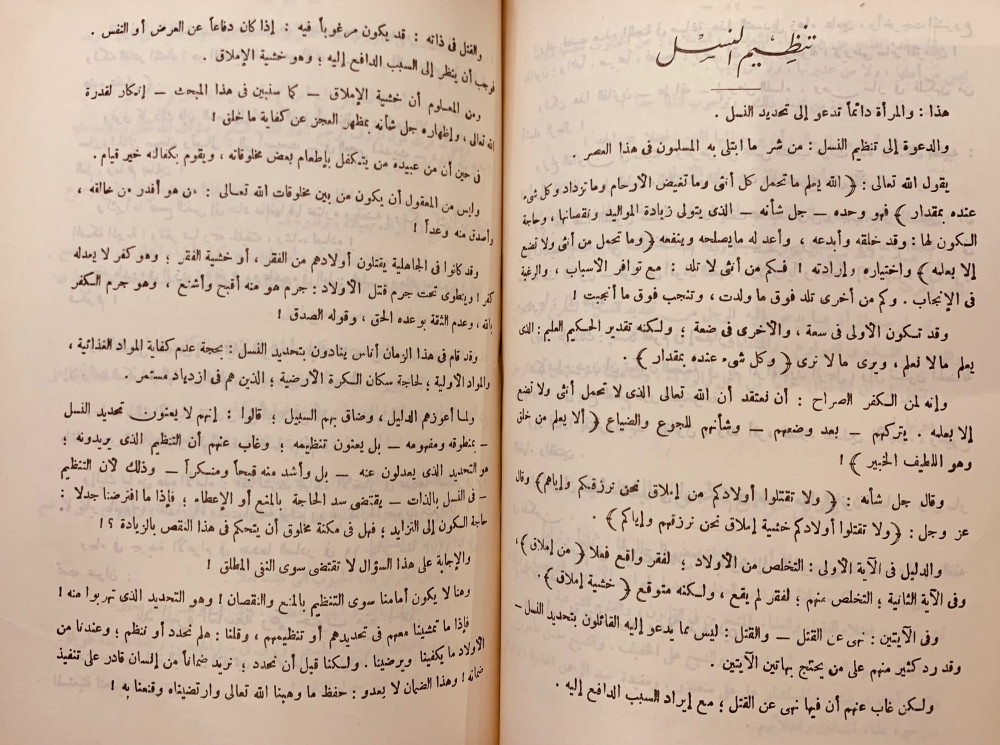 تنظيم النسل
هذا : والمرأة دائماً تدعو إلى تحديد النسل .
والدعوة إلى تنظيم النسل : من شر ما ابتلى به المسلمون فى هذا العصر .
يقول الله تعالى : ﴿ الله يعلم ما تحمل كل أنثى وما تغيض الأرحام وما تزداد وكل شىء
عنده بمقدار ﴾ فهو وحده — جل شأنه — الذى يتولى زيادة المواليد ونقصانها ، وحاجة
السكون لها : وقد خلقه وأبدعه ، وأعد له ما يصلحه وينفعه ﴿ وما تحمل من أنثى ولا تضع
إلا بعلمه ﴾ واختياره وإرادته ! فكم من أنثى لا تلد : مع توافر الأسباب ، والرغبة
فى الإنجاب . وكم من أخرى تلد فوق ما ولدت ، وتنجب فوق ما أنجبت !
وقد تكون الأولى فى سعة ، والأخرى فى ضعة ؛ ولكنه تقدير الحكيم العليم : الذى
يعلم مالا نعلم ، ويرى مالا نرى ﴿ وكل شىء عنده بمقدار ﴾ .
وإنه لمن الكفر الصراح : أن نعتقد أن الله تعالى الذى لا تحمل أنثى ولا تضع
إلا بعلمه . يتركهم — بعد وضعهم — وشأنهم للجوع والضياع ﴿ ألا يعلم من خلق
وهو اللطيف الخبير ﴾ !
وقال جل شأنه : ﴿ ولا تقتلوا أولادكم من إملاق نحن نرزقكم وإياهم ﴾ وقال
عز وجل : ﴿ ولا تقتلوا أولادكم خشية إملاق نحن نرزقهم وإياكم ﴾ .
والدليل فى الآية الأولى : التخلص من الأولاد ؛ لفقر واقع فعلا ﴿ من إملاق ﴾ ،
وفى الآية الثانية ؛ التخلص منهم ؛ لفقر لم يقع ، ولكنه متوقع ﴿ خشية إملاق ﴾ .
وفى الآيتين : نهى عن القتل — والقتل : ليس مما يدعو إليه القائلون بتحديد النسل —
وقد رد كثير منهم على من يحتج بهاتين الآيتين .
ولكن غاب عنهم أن فيها نهى عن القتل ؛ مع إيراد السبب الدافع إليه .
والقتل فى ذاته : قد يكون مرغوباً فيه : إذا كان دفاعاً عن العرض أو النفس .
فوجب أن ينظر إلى السبب الدافع إليه ؛ وهو خشية الإملاق .
ومن المعلوم أن خشية الإملاق — كما سنبين فى هذا المبحث — إنكار لقدرة
الله تعالى ، وإظهاره جل شأنه بمظهر العجز عن كفاية ما خلق !
فى حين أن من عبيده من يتكفل بإطعام بعض مخلوقاته ، ويقوم بكفالته خير قيام .
وليس من المعقول أن يكون من بين مخلوقات الله تعالى : من هو أقدر من خالقه ،
وأصدق منه وعداً !
وقد كانوا فى الجاهلية يقتلون أولادهم من الفقر ، أو خشية الفقر ؛ وهو كفر لا يعدله
كفر ! وينطوى تحت جرم قتل الأولاد : جرم هو منه أقبح وأشنع ، وهو جرم الكفر
بالله ، وعدم الثقة بوعده الحق ، وقوله الصدق !
وقد قام فى هذا الزمان أناس ينادون بتحديد النسل : بحجة عدم كفاية المواد الغذائية ،
والمواد الأولية ؛ لحاجة سكان الكرة الأرضية ؛ الذين هم فى ازدياد مستمر .
ولما أعوزهم الدليل ، وضاق بهم السبيل ؛ قالوا : إنهم لا يعنون تحديد النسل
— بمنطوقه ومفهومه — بل يعنون تنظيمه ؛ وغاب عنهم أن التنظيم الذى يريدونه ؛
هو التحديد الذى يعدلون عنه — بل وأشد منه قبحاً ومنكراً — وذلك لأن التنظيم
— فى النسل بالذات — يقتضى سد الحاجة بالمنع أو الإعطاء ؛ فإذا ما افترضنا جدلا :
حاجة السكون إلى التزايد ؛ فهل فى مكنة مخلوق أن يتحكم فى هذا النقص بالزيادة ؟ !
والإجابة على هذا السؤال لا تقتضى سوى النفى المطلق !
وهنا لا يكون أمامنا سوى التنظيم بالمنع والنقصان ! وهو التحديد الذى تهربوا منه !
فإذا ما تمشينا معهم فى تحديدهم أو تنظيمهم ، وقلنا : هلم نحدد أو ننظم ؛ وعندنا من
الأولاد ما يكفينا ويرضينا . ولكنا قبل أن نحدد ؛ نريد ضماناً من إنسان قادر على تنفيذ
ضمانه ! وهذا الضمان لا يعدو : حفظ ما وهبنا الله تعالى وارتضيناه وقنعنا به !